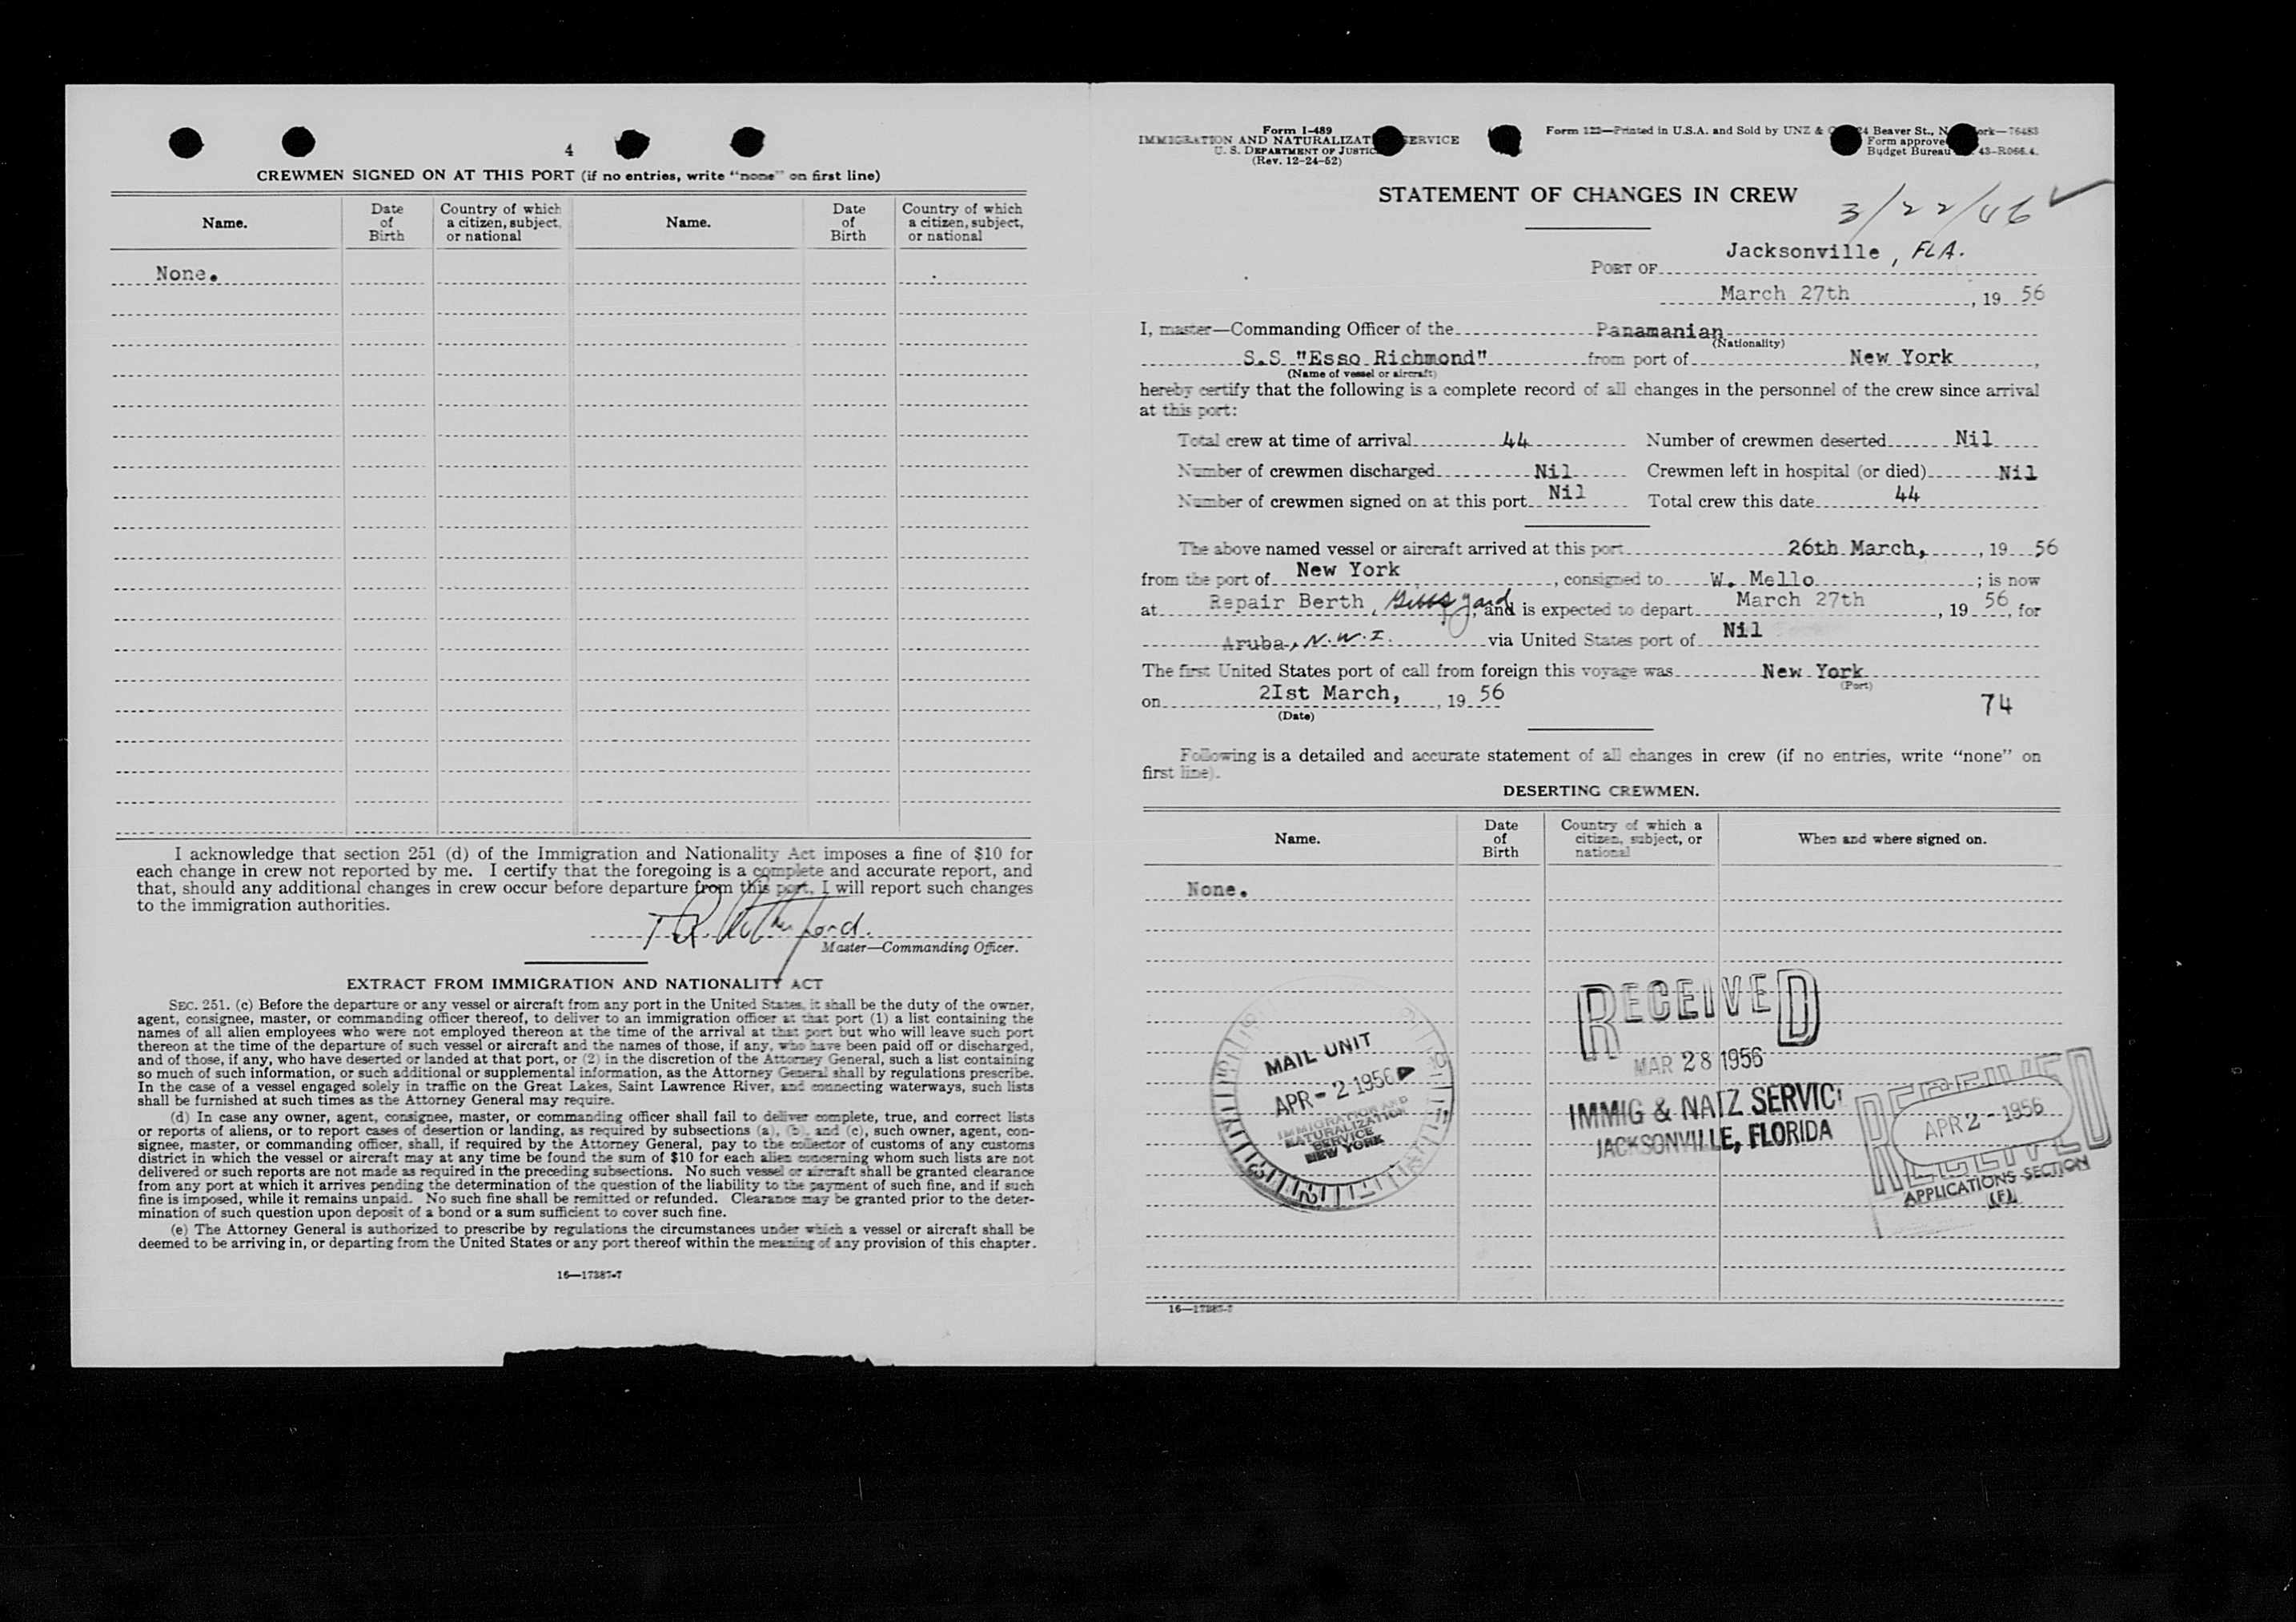 4
CREWMEN SIGNED ON AT THIS PORT (if no entries, write "none" on first line)
Name. Date of Birth Country of which a citizen, subject, or national Name. Date of Birth Country of which a citizen, subject, or national
None.
I acknowledge that section 251 (d) of the Immigration and Nationality Act imposes a fine of $10 for
each change in crew not reported by me. I certify that the foregoing is a complete and accurate report, and
that, should any additional changes in crew occur before departure from this port, I will report such changes
to the immigration authorities.
Master—Commanding Officer.
EXTRACT FROM IMMIGRATION AND NATIONALITY ACT
SEC. 251. (c) Before the departure or any vessel or aircraft from any port in the United States, it shall be the duty of the owner,
agent, consignee, master, or commanding officer thereof, to deliver to an immigration officer at that port (1) a list containing the
names of all alien employees who were not employed thereon at the time of the arrival at that port but who will leave such port
thereon at the time of the departure of such vessel or aircraft and the names of those, if any, who have been paid off or discharged,
and of those, if any, who have deserted or landed at that port, or (2) in the discretion of the Attorney General, such a list containing
so much of such information, or such additional or supplemental information, as the Attorney General shall by regulations prescribe.
In the case of a vessel engaged solely in traffic on the Great Lakes, Saint Lawrence River, and connecting waterways, such lists
shall be furnished at such times as the Attorney General may require.
(d) In case any owner, agent, consignee, master, or commanding officer shall fail to deliver complete, true, and correct lists
or reports of aliens, or to report cases of desertion or landing, as required by subsections (a), (b), and (c), such owner, agent, con-
signee, master, or commanding officer, shall, if required by the Attorney General, pay to the collector of customs of any customs
district in which the vessel or aircraft may at any time be found the sum of $10 for each alien concerning whom such lists are not
delivered or such reports are not made as required in the preceding subsections. No such vessel or aircraft shall be granted clearance
from any port at which it arrives pending the determination of the question of the liability to the payment of such fine, and if such
fine is imposed, while it remains unpaid. No such fine shall be remitted or refunded. Clearance may be granted prior to the deter-
mination of such question upon deposit of a bond or a sum sufficient to cover such fine.
(e) The Attorney General is authorized to prescribe by regulations the circumstances under which a vessel or aircraft shall be
deemed to be arriving in, or departing from the United States or any port thereof within the meaning of any provision of this chapter.
16—17387-7
Form I-489
IMMIGRATION AND NATURALIZAT SERVICE
U. S. DEPARTMENT OF JUSTIC
(Rev. 12-24-52)
Form 122—Printed in U.S.A. and Sold by UNZ & 24 Beaver St., N ork—76483
Form approve
Budget Bureau 43-R066.4.
STATEMENT OF CHANGES IN CREW
3/22/46
PORT OF Jacksonville, FLA.
March 27th, 19 56
I, master—Commanding Officer of the Panamanian
(Nationality)
S.S "Esso Richmond" from port of New York,
(Name of vessel or aircraft)
hereby certify that the following is a complete record of all changes in the personnel of the crew since arrival
at this port:
Total crew at time of arrival 44 Number of crewmen deserted Nil
Number of crewmen discharged Nil Crewmen left in hospital (or died) Nil
Number of crewmen signed on at this port Nil Total crew this date 44
The above named vessel or aircraft arrived at this port 26th March, , 19 56
from the port of New York, consigned to W. Mello; is now
at Repair Berth, Gibbs yard, and is expected to depart March 27th, 19 56, for
Aruba, N.W.I. via United States port of Nil
The first United States port of call from foreign this voyage was New York
(Port)
on 2Ist March, , 19 56
(Date)
74
Following is a detailed and accurate statement of all changes in crew (if no entries, write "none" on
first line).
DESERTING CREWMEN.
Name. Date of Birth Country of which a citizen, subject, or national When and where signed on.
None.
MAIL UNIT
APR - 2 1956
IMMIGRATION AND
NATURALIZATION
SERVICE
NEW YORK
RECEIVED
MAR 28 1956
IMMIG & NATZ SERVIC
JACKSONVILLE, FLORIDA
RECEIVED
APR 2 - 1956
RECEIVED
APPLICATIONS SECTION
(F)
16—17387-7